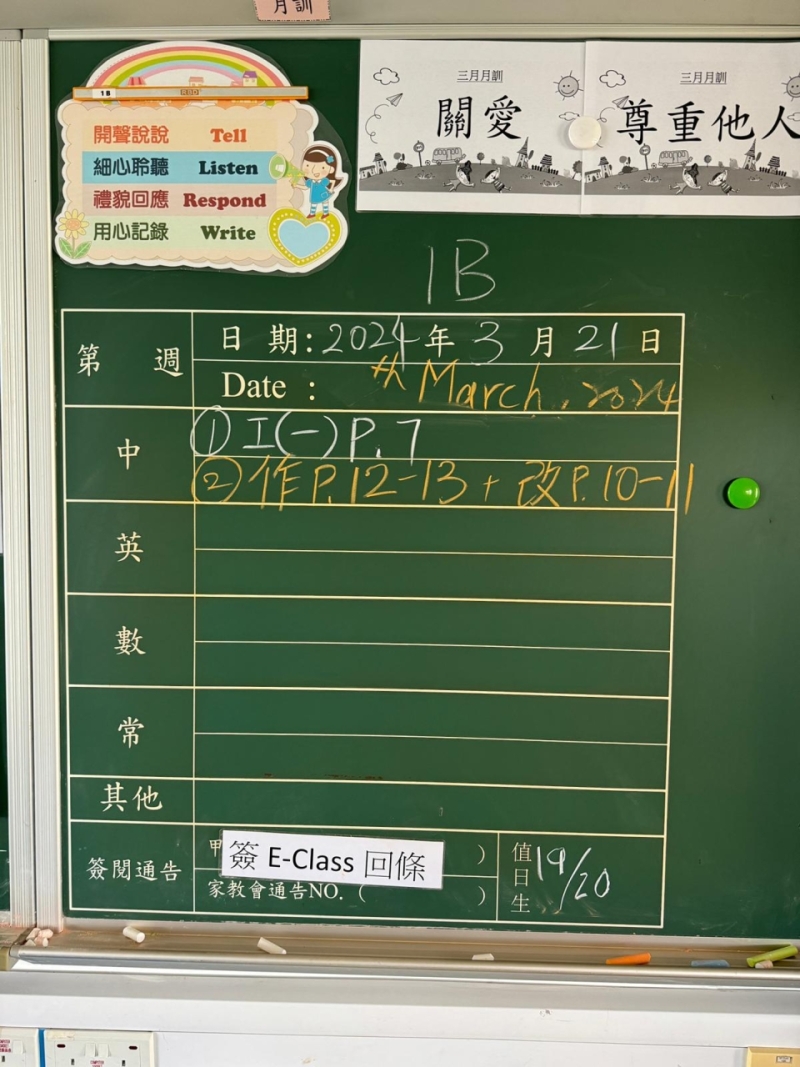 月訓
1B
開聲說說 Tell
細心聆聽 Listen
禮貌回應 Respond
用心記錄 Write
三月月訓
關愛
三月月訓
尊重他人
1B
第 週
日 期: 2024 年 3 月 21 日
Date : th March, 2024
中
① 工(一) P.7
② 作 P.12-13 + 改 P.10-11
英
數
常
其他
簽閱通告
簽 E-Class 回條
)
家教會通告NO. ( )
值日生 19/20